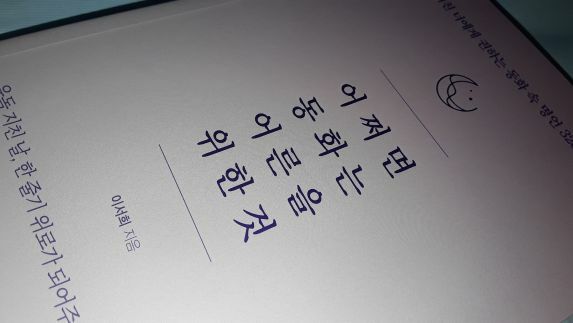 친 너에게 권하는 동화 속 명언 32
어쩌면
동화는
어른을
위한 것
이서희 지음
유독 지친 날, 한 줄기 위로가 되어주